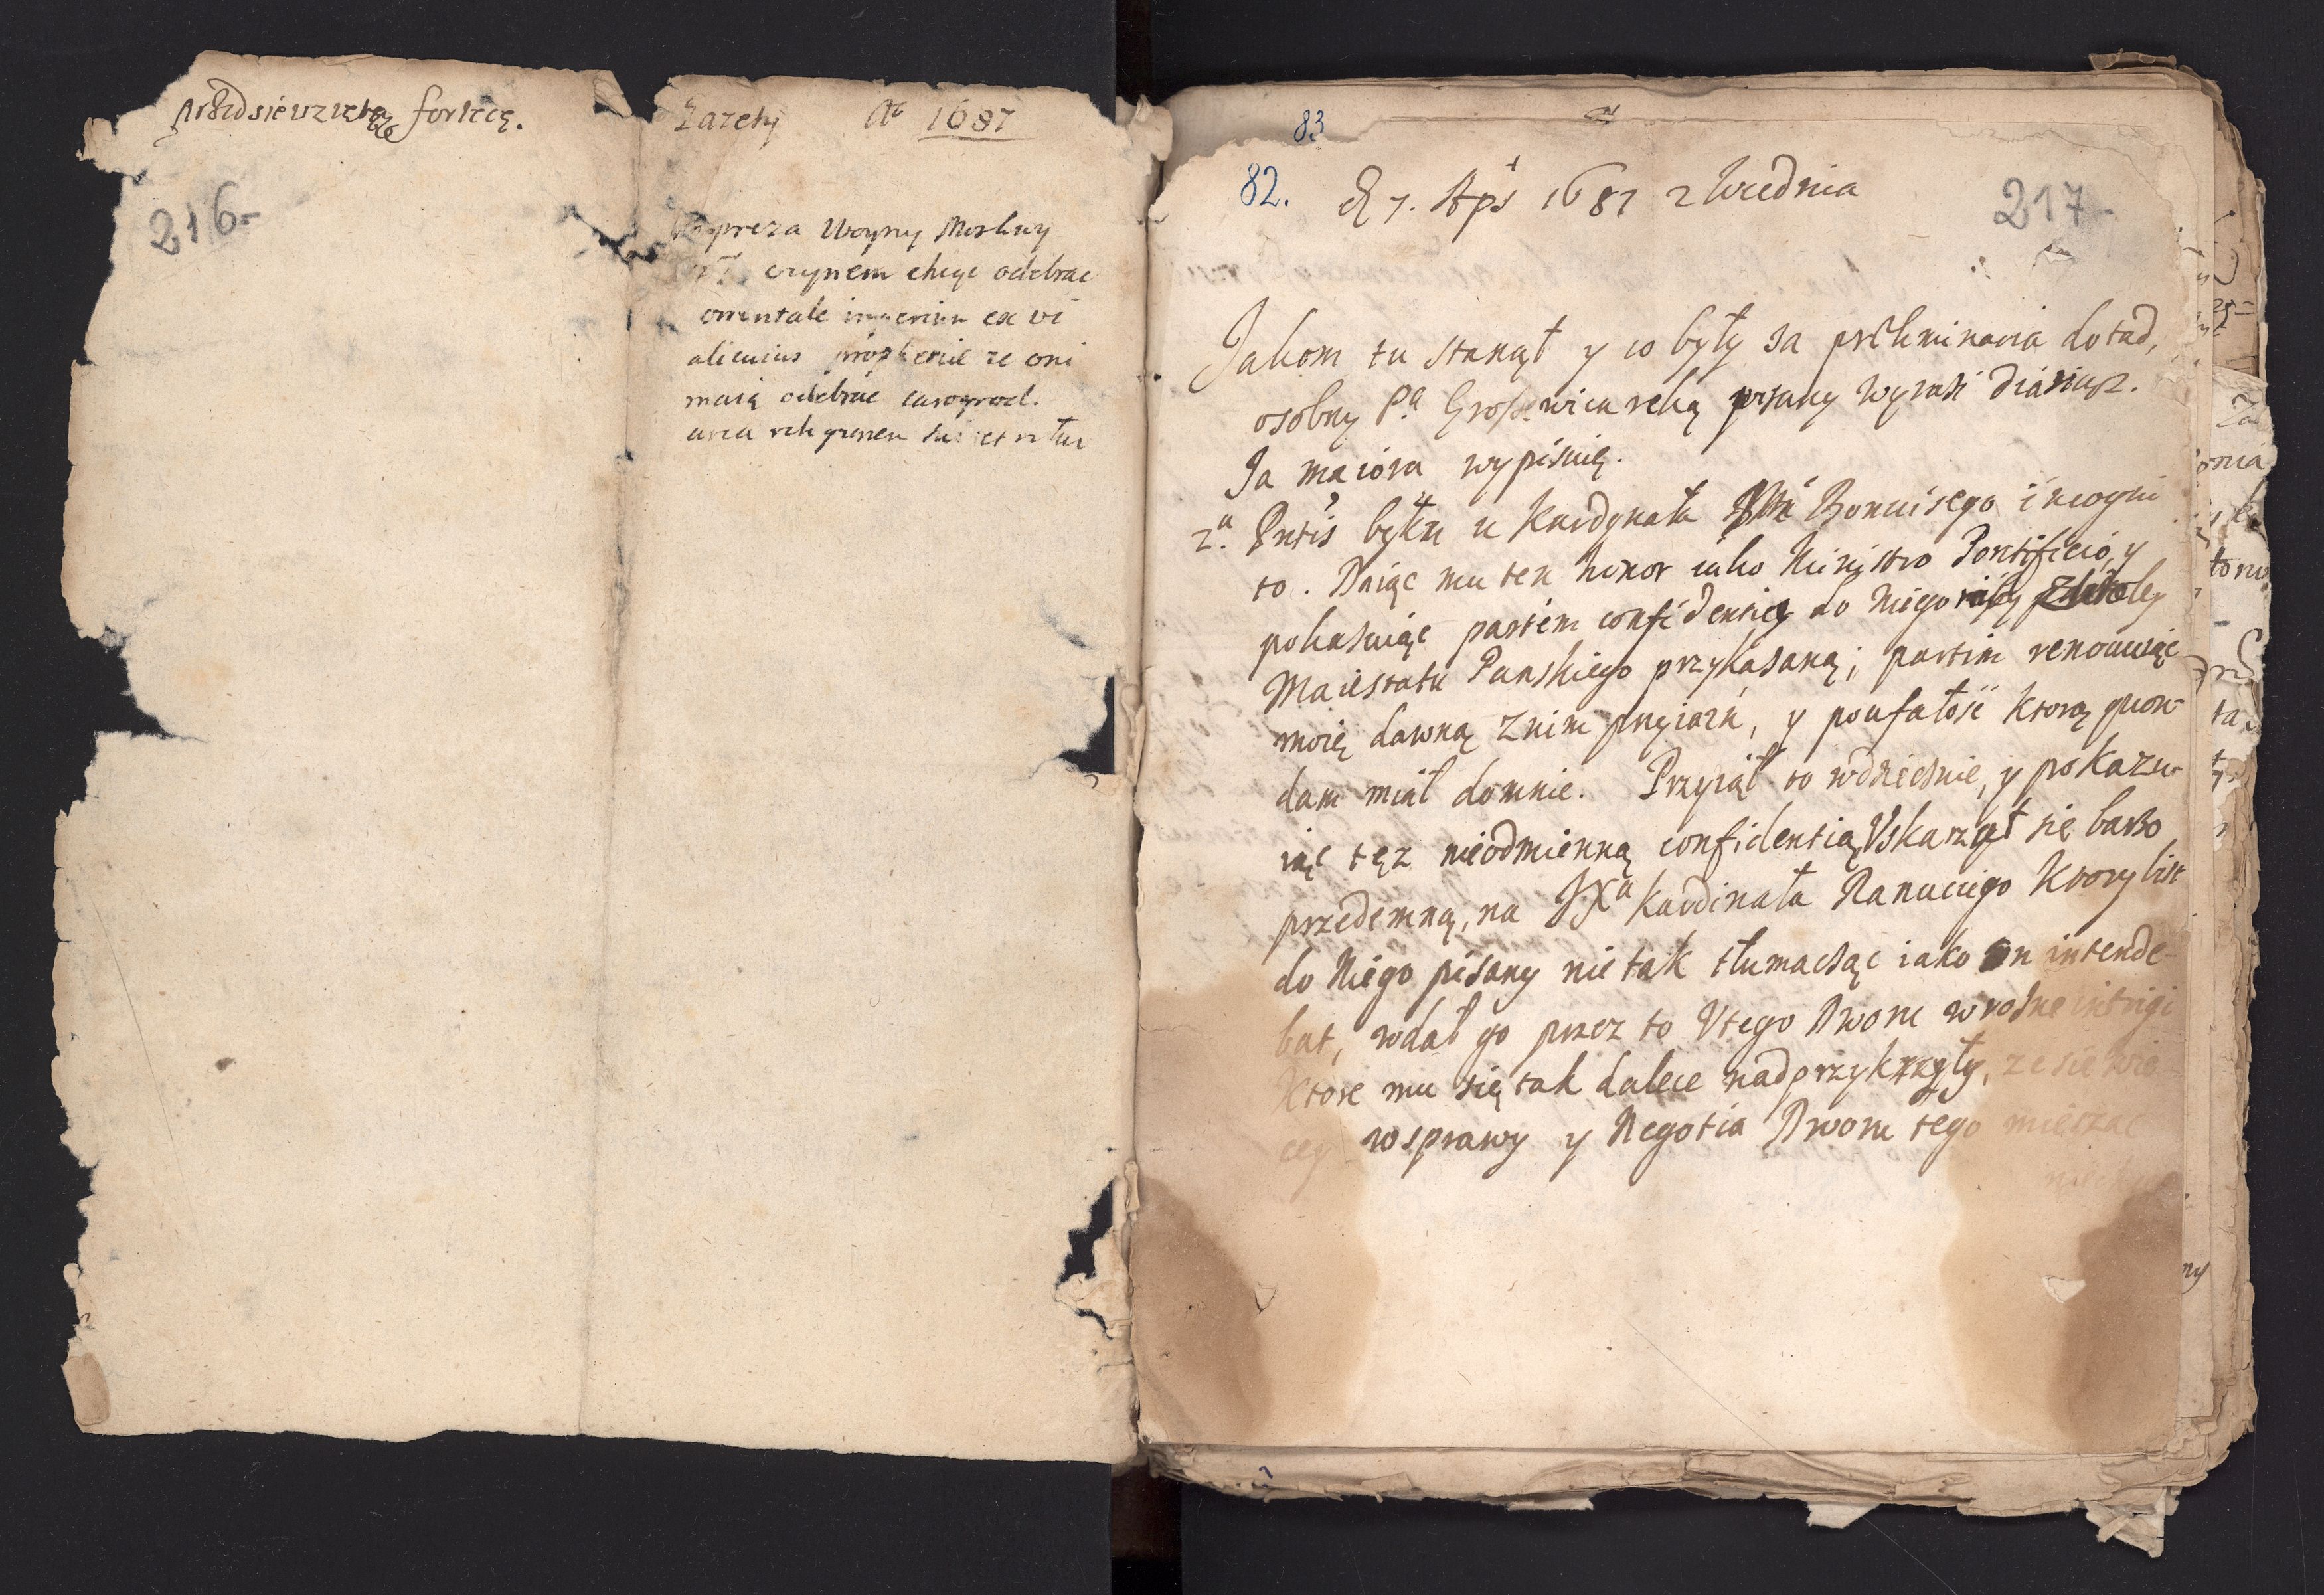 przedsiewzietą fortecę.
216-
Zazety Ao 1687
Impreza Woyny Moskwy
czynem chcąc odebrac
orientale imperium ex vi
alicuius prophetie ze oni
maią odebrać carogrod.
circa religionem
83
82. 7. 1687 z Wiednia
217-
Jakom tu stanął y co były za preliminaria dotad,
osobny P.a ręką pisany wyrazi diariusz.
Ja maiora wypiszuię.
2.a Pntis byłem u Kardynała Bonuisego incogni
to. Daiąc mu ten honor iako Ministro Pontificio, y
pokazuiąc partim confidentią do Niego
Maiestatu Panskiego przykazaną; partim renouuiąc
moię dawną znim przyiazń, y poufałość ktorą quon-
dam miał domnie. Przyiął to wdzięcznie, y pokazu-
iąc tęz nieodmienną confidentią, Vskarzał się barzo
przedemną, na JXa Kardinała Ranuciego Ktory list
do Niego pisany nie tak tłumacząc iako on intende-
bat, wdał go przez to Vtego Dworu w rozne intrigi
Ktore mu się tak dalece nadprzykrzyły, ze sie wie-
cey wsprawy y Negotia Dworu tego mieszac